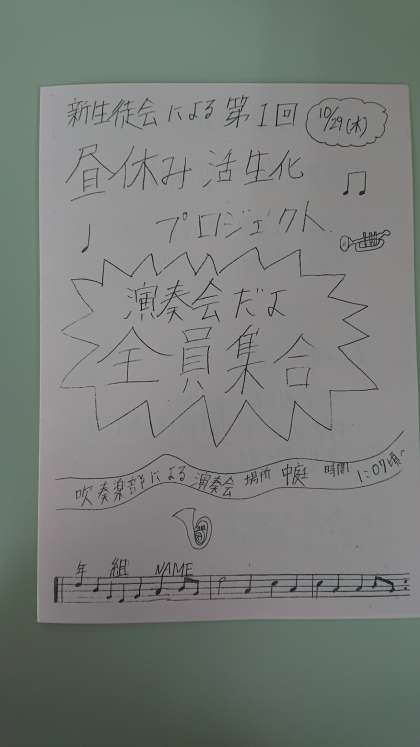 新生徒会による第1回
10/29(木)
昼休み活生化
プロジェクト
演奏会だよ
全員集合
吹奏楽部による演奏会 場所 中庭 時間 1:07頃
年 組 NAME